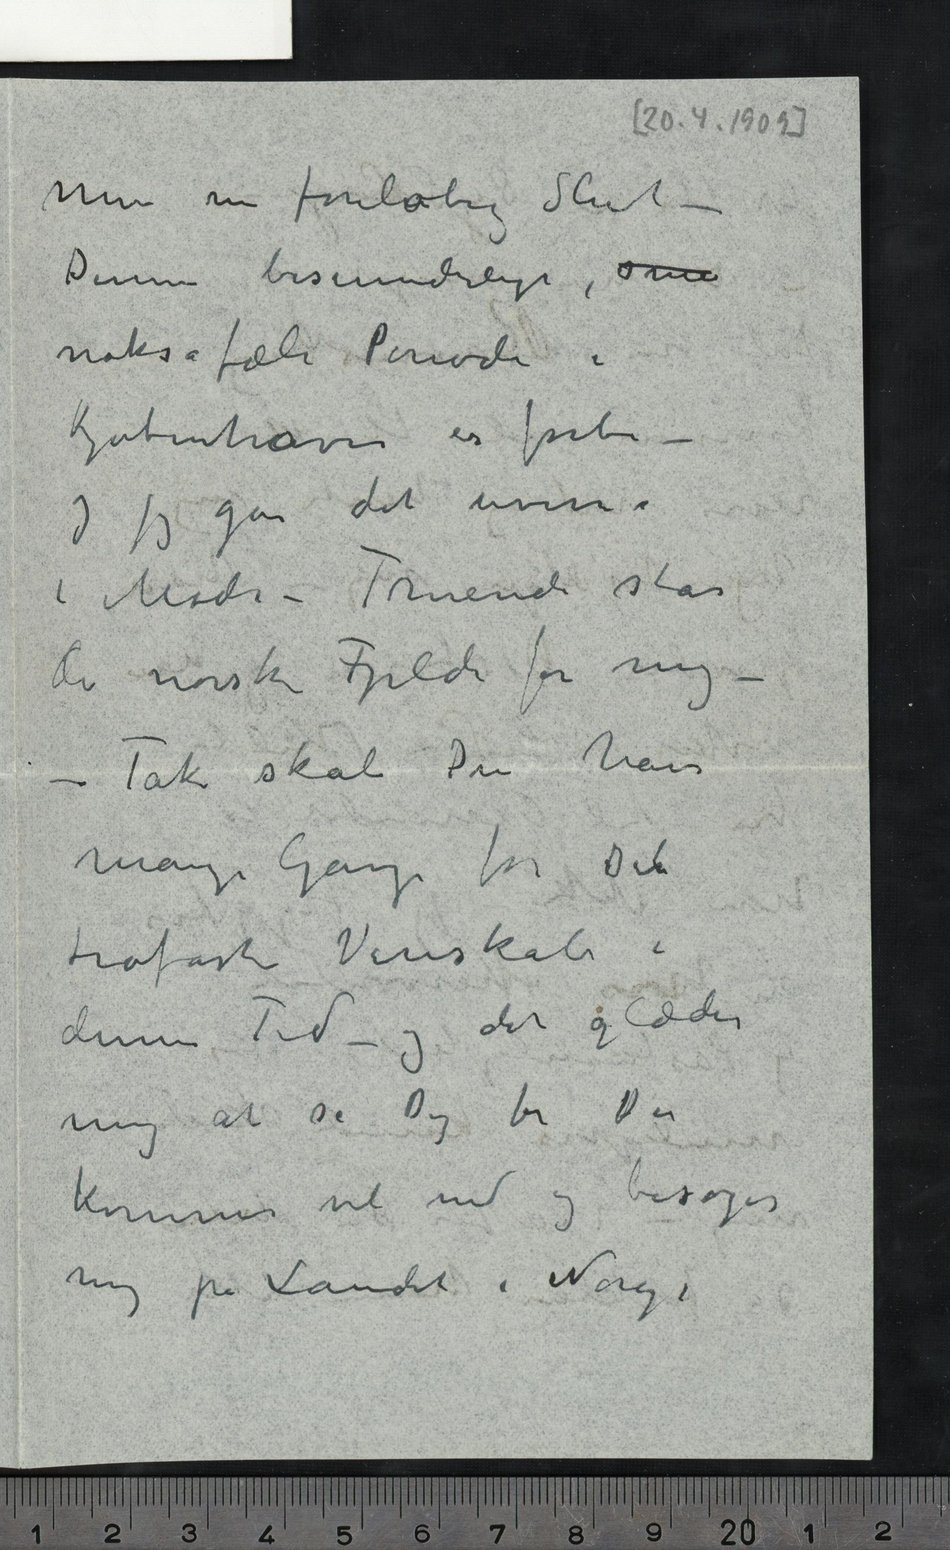 [20.4.1909]
men en foreløbig Slut –
Denne besynderlige, ~~som~~
noksa fæle Periode i
Kjøbenhavn er forbi –
Og jeg gar det uvisse
i Møde – Truende star
de norske Fjelde for mig –
– Tak skal Du have
mange Gange for Dit
trofaste Venskab i
denne Tid – og det glæder
mig at se Dig for Du
kommer vel ned og besøger
mig pa Landet i Norge
1 2 3 4 5 6 7 8 9 20 1 2